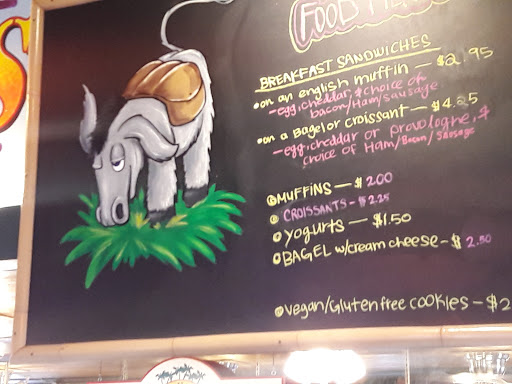 FOOD
BREAKFAST SANDWICHES
on an english muffin — $2.95
- egg, cheddar, & choice of
bacon/Ham/sausage
on a Bagel or croissant — $4.25
- egg, cheddar or provologne, &
choice of Ham/Bacon/Sausage
MUFFINS — $2.00
CROISSANTS - $2.25
yogurts — $1.50
BAGEL w/cream cheese - $2.50
vegan/Gluten free cookies - $2